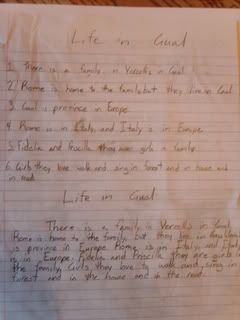 Life in Gual
1. There is a family in Vercellis in Gaul.
2. Rome is home to the family, but they live in Gaul
3. Gaul is province in Europe
4. Rome is in Italy, and Italy is in Europe
5. Fidelia and Priscilla they are girls in family
6. Girls they love walk and sing in forest and in house and
in road.
Life in Gual
There is a family in Vercellis in Gaul.
Rome is home to the family, but they live in Gaul. Gaul
is province in Europe Rome is in Italy, and Italy
is in Europe. Fidelia and Priscilla they are girls in
the family. Girls they love to walk and sing in
forest and in the house and in the road.